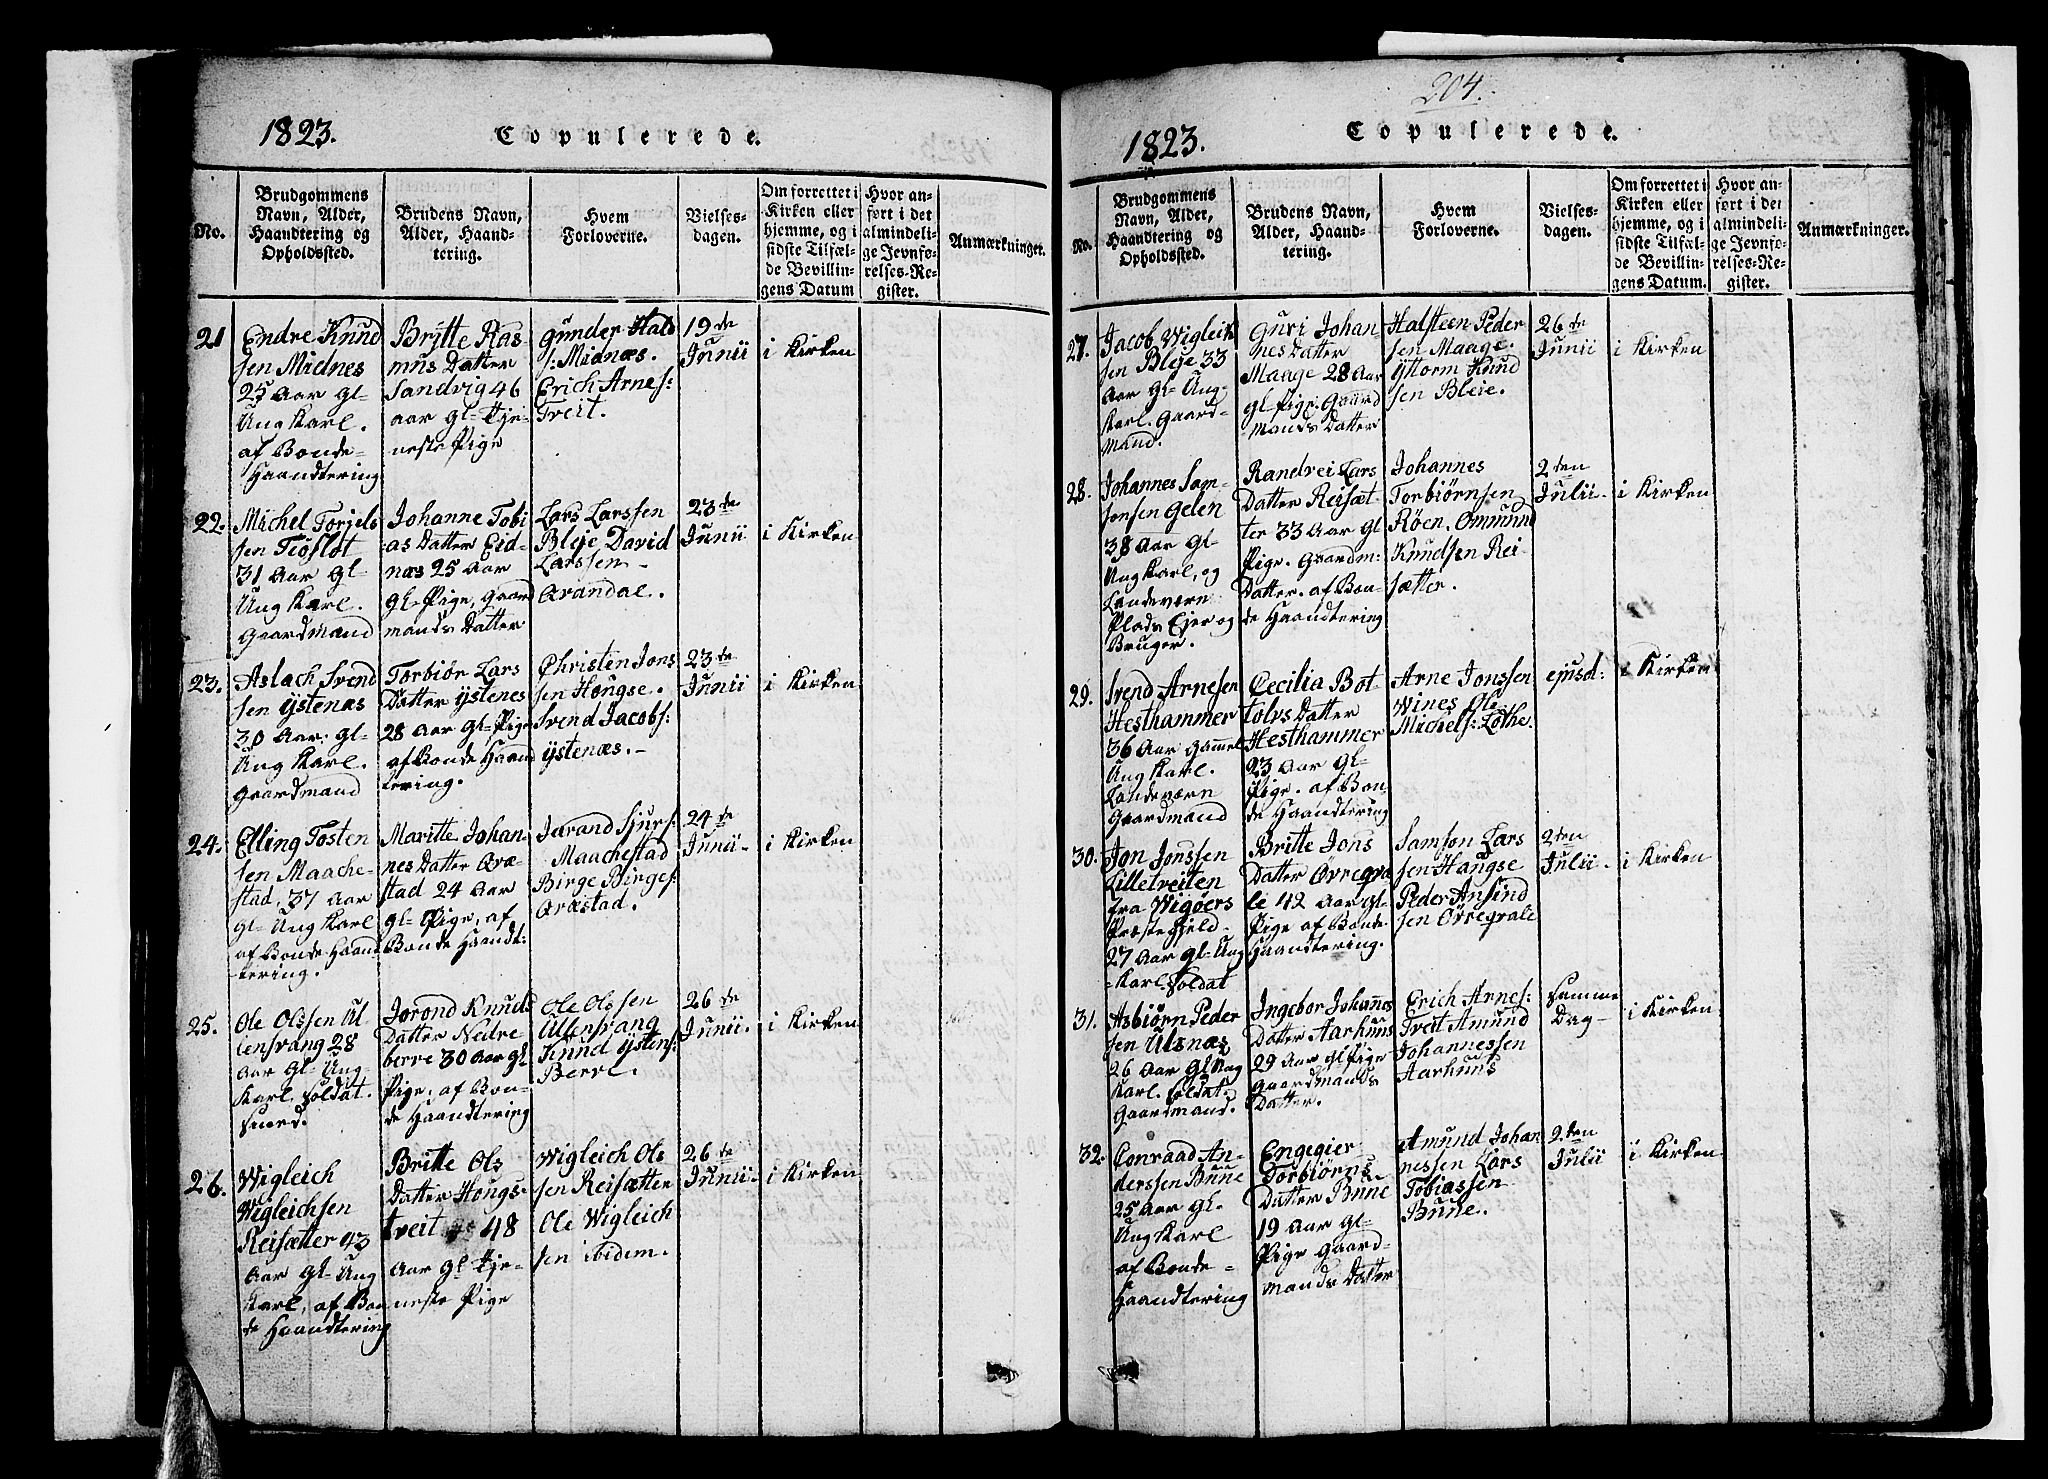 1823.
Copulerede.
No.
Brudgommens
Navn, Alder,
Haandtering og
Opholdssted.
Brudens Navn,
Alder, Haand-
tering.
Hvem
Forloverne.
Vielses-
dagen.
Om forrettet i
Kirken eller
hjemme, og i
sidste Tilfæl-
de Bevillin-
gens Datum
Hvor an-
ført i det
almindeli-
ge Jevnfø-
relses-Re-
gister.
Anmærkninger.
21
Endre Knud
sen Midnes
25 Aar Gl-
Ung Karl.
af Bonde-
Haandtering
Britte Ras
mus Datter
Sandvig 46
aar Gl- Tje-
neste Pige
Gunder Hald
s: Midnæs.
Erich Arnes:
Tveit.
19de
Junii
i Kirken
22.
Michel Torjels
sen Tiøflot
31 Aar Gl-
Ung Karl.
Gaardmand
Johanne Tobi
as Datter Eid-
næs 25 Aar
Gl- Pige, Gaard
mands Datter
Lars Larssen
Bleje David
Larssen-
Arandal.
23de
Junii
i Kirken
23.
Aslach Svend
sen Ystenæs
30 Aar. Gl-
Ung Karl.
Gaardmand
Torbiør Lars
Datter Ystenes
28 Aar Gl- Pige
af Bonde Haand
tering.
Christen Jons
sen Hougse.
Svend Jacobs:
Ystenæs.-
23de
Junii
i Kirken
24.
Elling Tosten
sen Maache-
stad, 37 Aar
Gl- Ung Karl
af Bonde Haand
tering.
Maritte Johan-
nes Datter Aræ-
stad 24 Aar
Gl- Pige, af
Bonde Haandt:
Jarand Sjurs:
Maachestad
Birge Birges:
Aræstad.
24de
Junii-
i Kirken
25.
Ole Olssen Ul
lensvang 28
Aar Gl- Ung-
Karl. Soldat.
Smed.
Jorond Knuds
Datter Nedre-
berre 30 Aar Gl-
Pige, af Bon-
de Haandtering
Ole Olssen
Ullensvang
Knud Ystens:
Berre.
26de
Junii.
i Kirken
26.
Wigleich
Wigleichsen
Reisætter 43
Aar Gl- Ung
Karl, af Bon
de Haandtering
Britte Ols
Datter Hougs-
tveit 48
Aar Gl- Tje-
neste Pige
Wigleich Ols
sen Reisætter
Ole Wigleich
sen ibidem.
26de
Junii-
i Kirken
204.
1823.
Copulerede.
No.
Brudgommens
Navn, Alder,
Haandtering og
Opholdssted.
Brudens Navn,
Alder, Haand-
tering.
Hvem
Forloverne.
Vielses-
dagen.
Om forrettet i
Kirken eller
hjemme, og i
sidste Tilfæl-
de Bevillin-
gens Datum.
Hvor an-
ført i det
almindeli-
ge Jevnfø-
relses-Re-
gister.
Anmærkninger.
27.
Jacob Wigleik
sen Bleje 33
Aar Gl- Ung-
Karl. Gaard-
mand.
Guri Johan-
nes Datter
Maage 28 Aar
Gl Pige. Gaard
mands Datter
Halsteen Peder
sen Maage.
Yttorm Knud
sen Bleie.
26de
Junii
i Kirken
28.
Johannes Sam-
sonsen Gelen
38 Aar Gl-
Ung Karl, og
Landeværn
Plads Ejer og
Bruger.
Randvei Lars
Datter Reisæt-
ter 33 Aar Gl
Pige. Gaardm:
Datter. af Bon-
de Haandtering
Johannes
Torbiørnsen
Røen. Ommund
Knudsen Rei-
sætter.
2den
Julii.
i Kirken
29.
Svend Arnesen
Hesthammer
36 Aar Gammel
Ung Karl.
Landeværn
Gaardmand
Cecilia Bot-
tolvs Datter
Hesthammer
23 Aar Gl-
Pige. af Bon-
de Haandtering
Arne Jonssen
Wines Ole
Michels: Lothe.
ejusd:
i Kirken
30.
Jon Jonssen
Lilletveiten
fra Wigøers
Præstegjeld-
27 Aar Gl- Ung
Karl. Soldat
Britte Jons
Datter Øvregra
le 42 Aar Gl
Pige af Bonde
Haandtering.
Samson Lars
sen Haugse
Peder Amund
sen Øvregrale
2den
Julii-
i Kirken
31.
Asbiørn Peder
sen Ulsnæs
26 Aar Gl Ung
Karl. Soldat.
Gaardmand.
Ingebor Johannes
Datter Aarhuus
29 Aar Gl Pige
Gaardmands
Datter.
Erich Arnes:
Tveit Amund
Johannessen
Aarhuus
Samme
Dag-
i Kirken
32.
Conraad An-
derssen Bune
25 Aar Gl.
Ung Karl
af Bonde-
Haandtering
Engegier
Torbiørns
Datter Bune
19 Aar Gl-
Pige Gaard-
mands Datter
Amund Johan
nessen Lars
Tobiassen
Bune.
2den
Julii
i Kirken